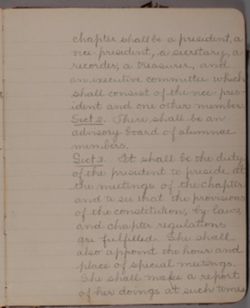 chapter shall be a president, a
vice-president, a secretary, a
recorder, a treasurer, and
an executive committee which
shall consist of the vice-pres-
ident and one other member.
Sect 2. There shall be an
advisory board of alumnae
members.
Sect 3. It shall be the duty
of the president to preside at
the meetings of the chapter
and to see that the provisions
of the constitution, by-laws,
and chapter regulations
are fulfilled. She shall
also appoint the hours and
place of special meetings.
She shall make a report
of her doings at such times